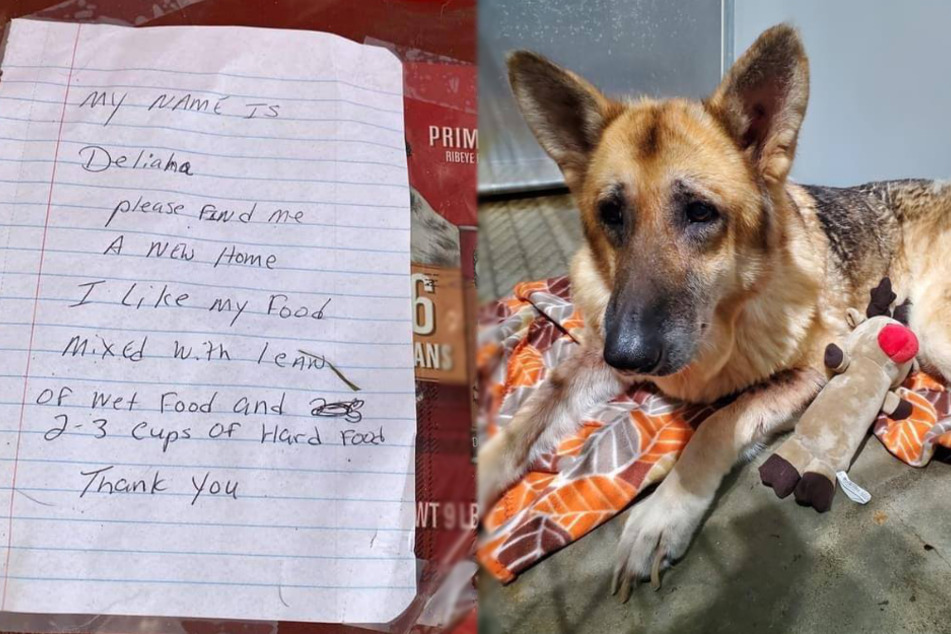 MY NAME IS
Deliaha
please find me
A New Home
I Like my Food
Mixed with 1 can
of wet Food and
2-3 cups of Hard Food
Thank you
PRIM
RIBEYE
6
ANS
WT 9 LB